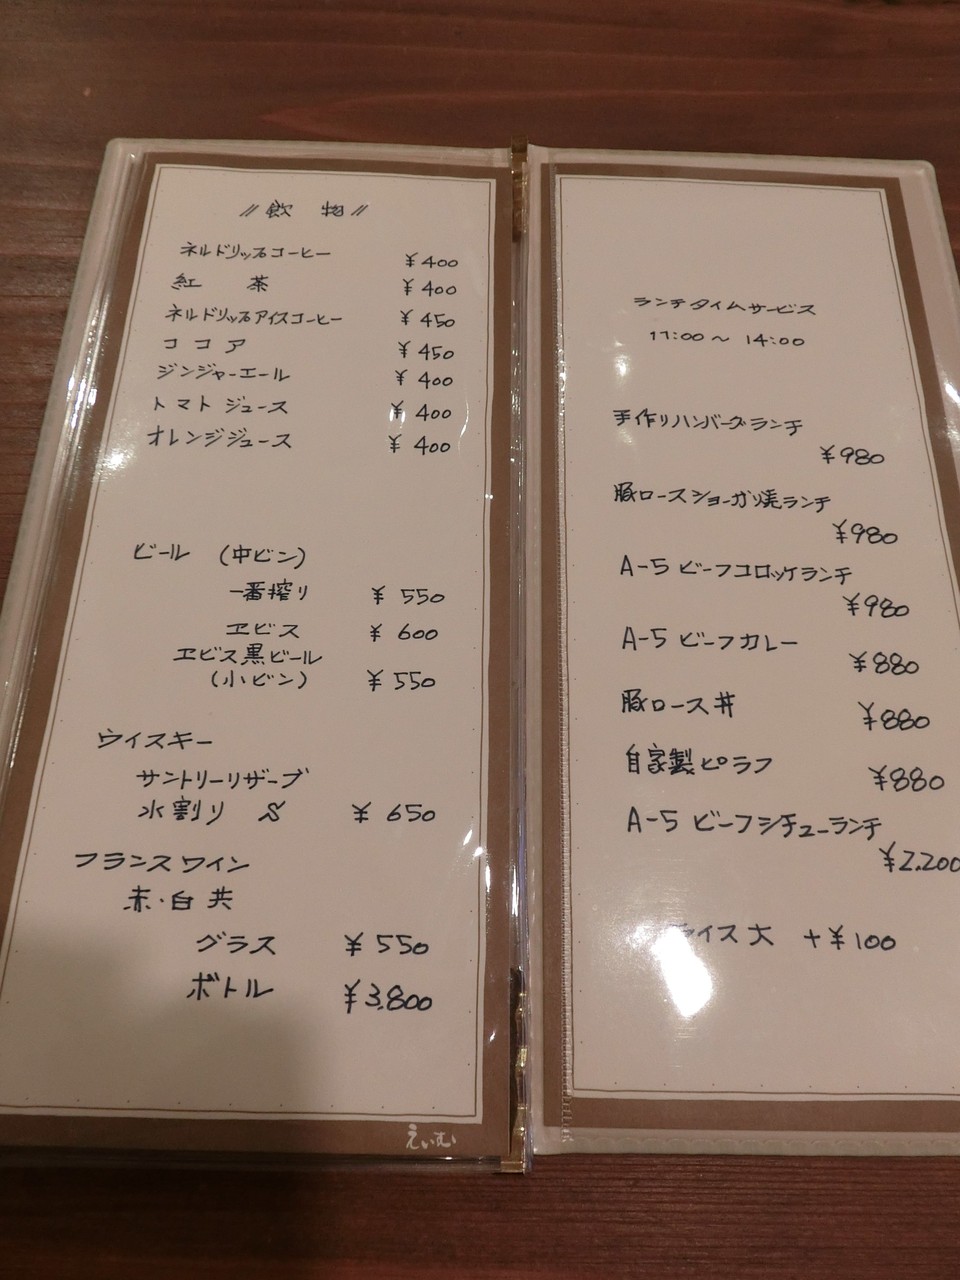 〃飲 物〃
ネルドリップコーヒー ¥400
紅 茶 ¥400
ネルドリップアイスコーヒー ¥450
ココア ¥450
ジンジャーエール ¥400
トマトジュース ¥400
オレンジジュース ¥400
ビール (中ビン)
一番搾り ¥550
ヱビス ¥600
ヱビス黒ビール
(小ビン) ¥550
ウイスキー
サントリーリザーブ
水割り S ¥650
フランスワイン
赤・白共
グラス ¥550
ボトル ¥3,800
えいむ
ランチタイムサービス
11:00〜14:00
手作りハンバーグランチ
¥980
豚ロースショーガ焼ランチ
¥980
A-5 ビーフコロッケランチ
¥980
A-5 ビーフカレー
¥880
豚ロース丼
¥880
自家製ピラフ
¥880
A-5 ビーフシチューランチ
¥2,200
ライス大 +¥100